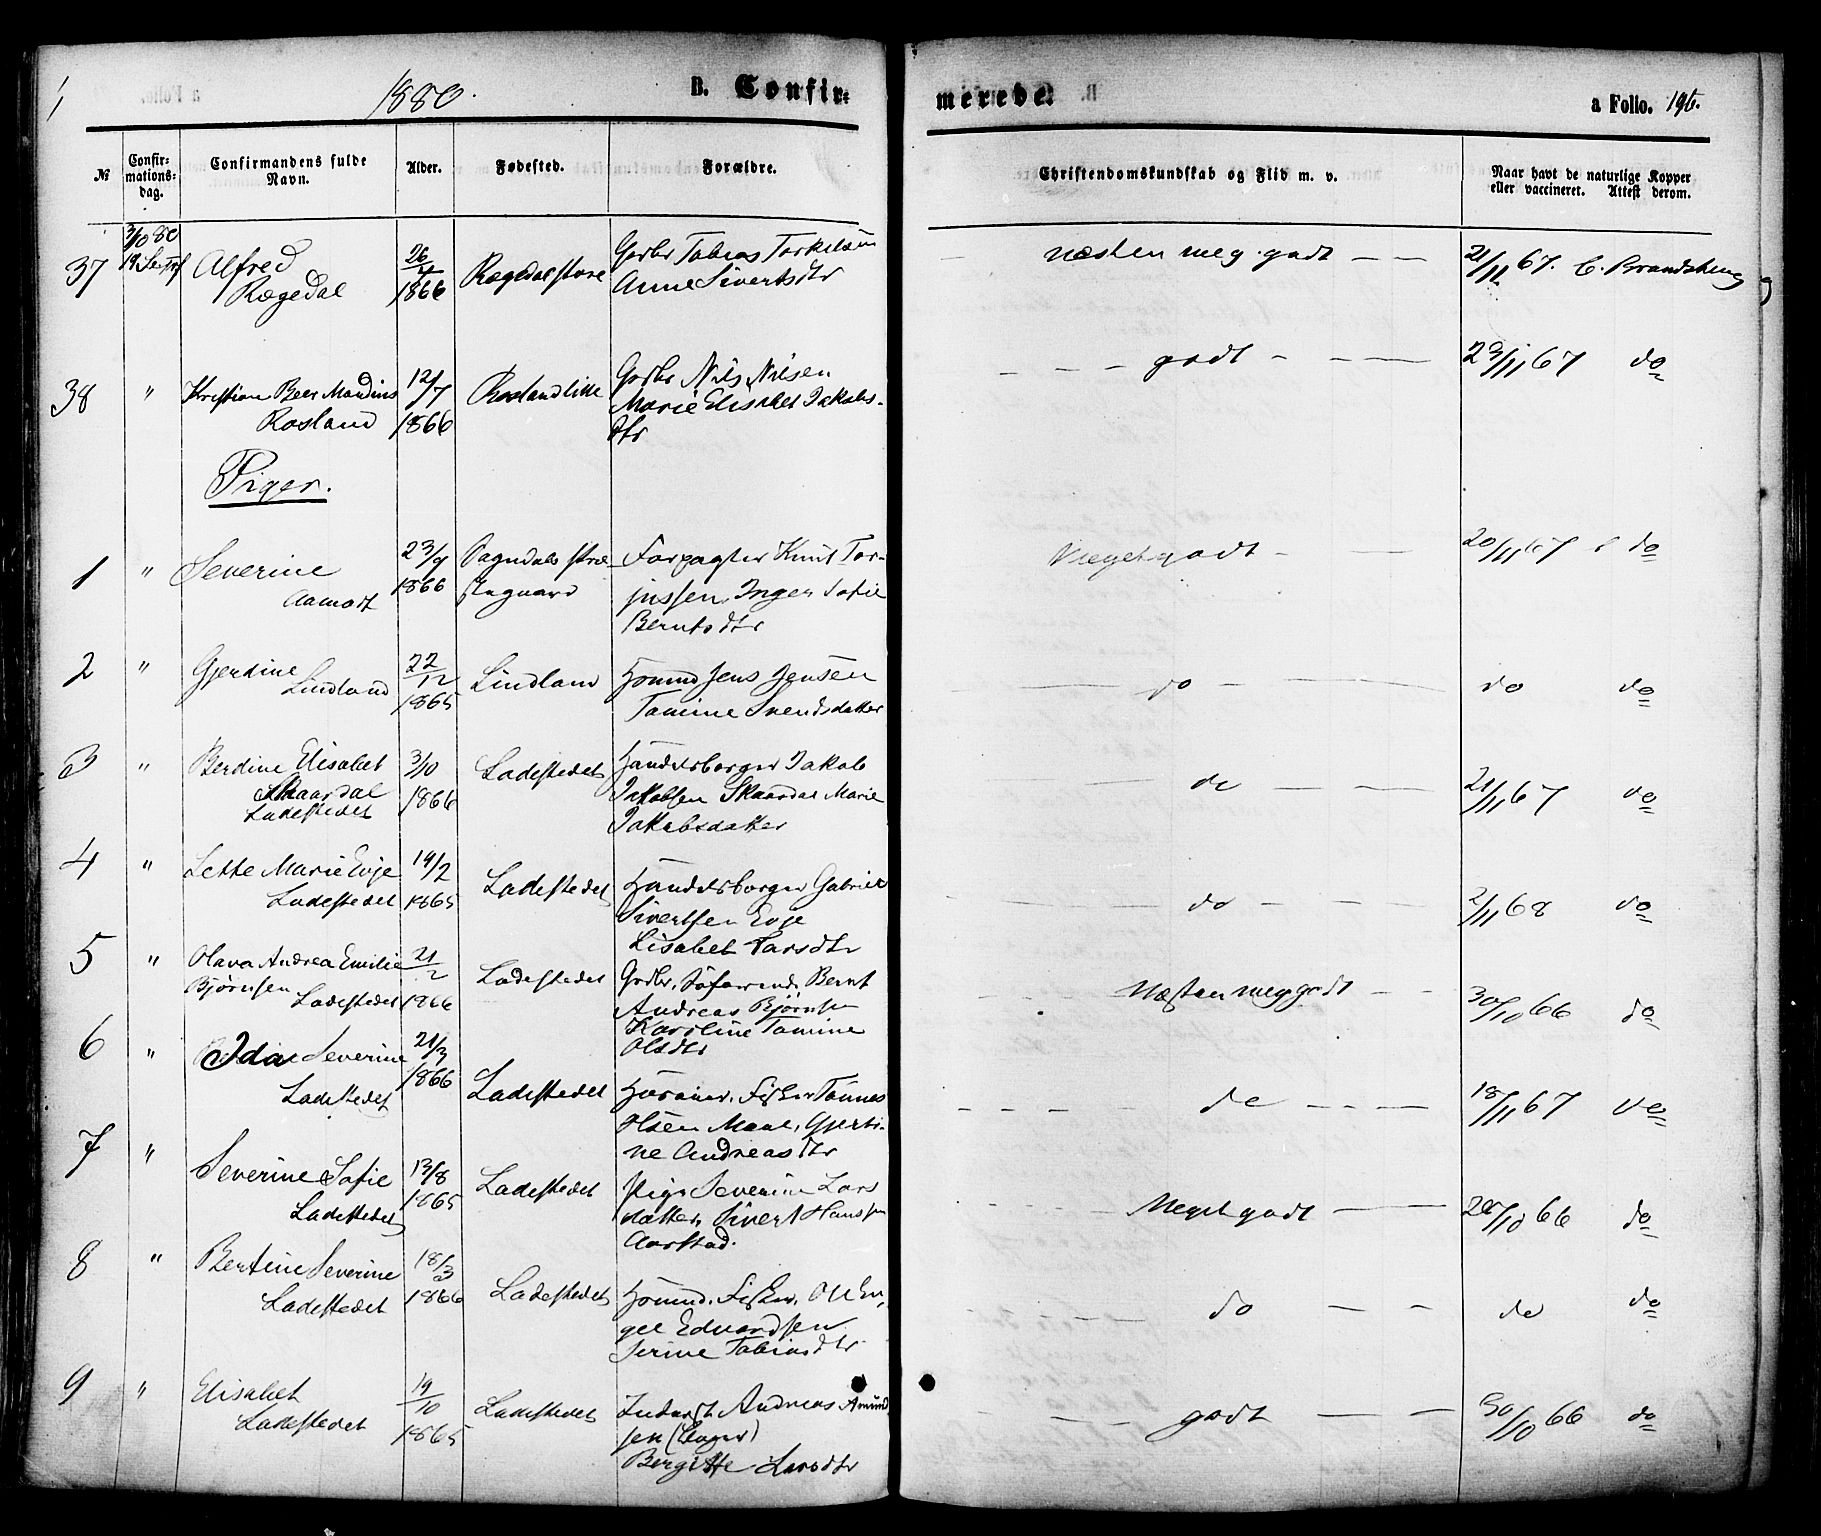 1880.
B. Confir-
merede.
a Folio. 196.
№
Confir-
mations-
dag.
Confirmandens fulde
Navn.
Alder.
Fødested.
Forældre.
Christendomskundskab og Flid m. v.
Naar havt de naturlige Kopper
eller vaccineret. Attest derom.
37 Alfred 26/4 Rægedal store Gbr Tobias Torkelsen Næsten meg. godt — — 21/11 67. C. Brandsberg
Rægedal 1866 Anne Sivertsdtr
38 " Kristian Beer Maudius 12/7 Rosland lille Gbr Nils Nilsen — — — godt — — — 23/11 67 do
Rosland 1866 Marie Elisabet Jakobs-
dtr
Piger.
1 " Severine 23/9 Forpagter Knut Tor- Meget godt — — 20/11 67 do
Aamodt 1866 jussen, Inger Sofie
Berntsdtr
2 " Gjertine 22/12 Lindland Jens Jensen — — do — — — do do
Lindland 1865 Tomine Svendsdatter
3 " Berdine Elisabet 3/10 Ladestedet Handelsborger Jakob — — do — — 21/11 67 do
Skaardal 1866 Jakobsen Skaardal Marie
Ladestedet Jakobsdatter
4 " Lette Marie Evje 14/2 Ladestedet Handelsborger Gabriel — — do — — — 2/11 68 do
Ladestedet 1865 Sivertsen Evje
Lisabet Larsdtr
5 " Olava Andrea Emilie 21/2 Ladestedet Bernt — — Næsten meg godt — — 30/10 66 do
Bjørnsen Ladestedet 1866 Andreas Bjørnsen
Karoline Tomine
Olsdtr
6 " Ida Severine 21/3 Ladestedet Fisker Tønnes — — — do — — — 18/11 67 do
Ladestedet 1866 Olsen Maal, Gjerti-
ne Andreasdtr
7 " Severine Sofie 13/8 Ladestedet Pige Severine Lars — — Meget godt — — 28/10 66 do
Ladestedet 1865 datter, Sivert Hanssen
Aarstad.
8 " Bertine Severine 18/3 Ladestedet Fisker, Ole En- — — do — — do do
Ladestedet 1866 gel Edvardsen
Serine Tobiasdtr
9 " Elisabet 19/10 Ladestedet Inderst Andreas Amund — — godt — — 30/10 66 do
Ladestedet 1865 sen
Birgitte Larsdtr